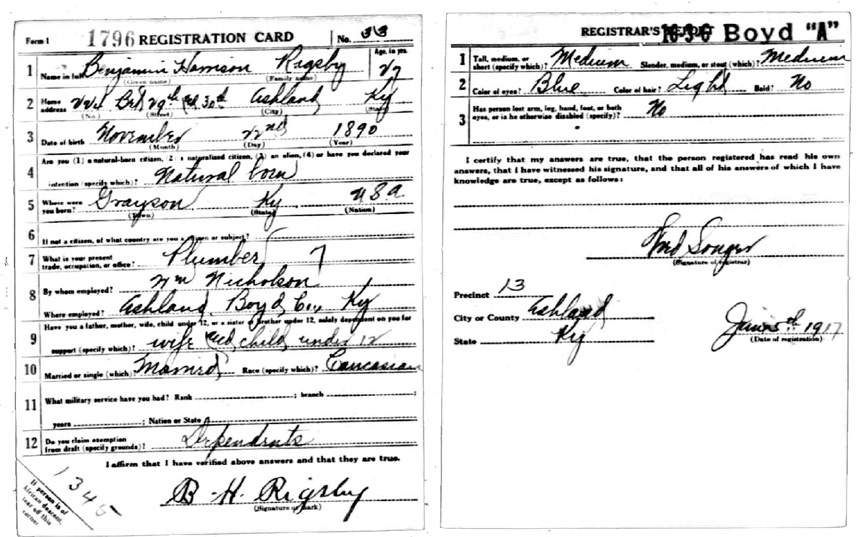 Form 1 1796 REGISTRATION CARD No. 33
1 Name in full Benjamin Harrison Rigsby Age, in yrs.
(Given name) (Family name) 27
2 Home address Bet 29th & 30th Ashland Ky
(No.) (Street) (City) (State)
3 Date of birth November 22nd 1890
(Month) (Day) (Year)
Are you (1) a natural-born citizen, (2) a naturalized citizen, (3) an alien, (4) or have you declared your
4 intention (specify which)? Natural born
5 Where were you born? Grayson Ky USA
(Town) (State) (Nation)
6 If not a citizen, of what country are you a citizen or subject?
7 What is your present trade, occupation, or office? Plumber 7
8 By whom employed? Wm Nicholson
Where employed? Ashland, Boyd Co, Ky
Have you a father, mother, wife, child under 12, or a sister or brother under 12, solely dependent on you for
9 support (specify which)? wife and child under 12
10 Married or single (which)? Married Race (specify which)? Caucasian
11 What military service have you had? Rank ; branch ;
years ; Nation or State
12 Do you claim exemption from draft (specify grounds)? Dependents
I affirm that I have verified above answers and that they are true.
B. H. Rigsby
(Signature or mark)
1345
If person is of African descent, tear off this corner
REGISTRAR'S Boyd "A"
1 Tall, medium, or short (specify which)? Medium Slender, medium, or stout (which)? Medium
2 Color of eyes? Blue Color of hair? Light Bald? No
3 Has person lost arm, leg, hand, foot, or both eyes, or is he otherwise disabled (specify)? No
I certify that my answers are true, that the person registered has read his own
answers, that I have witnessed his signature, and that all of his answers of which I have
knowledge are true, except as follows:
Fred Songer
(Signature of registrar)
Precinct 13
City or County Ashland
State Ky June 5th 1917
(Date of registration)